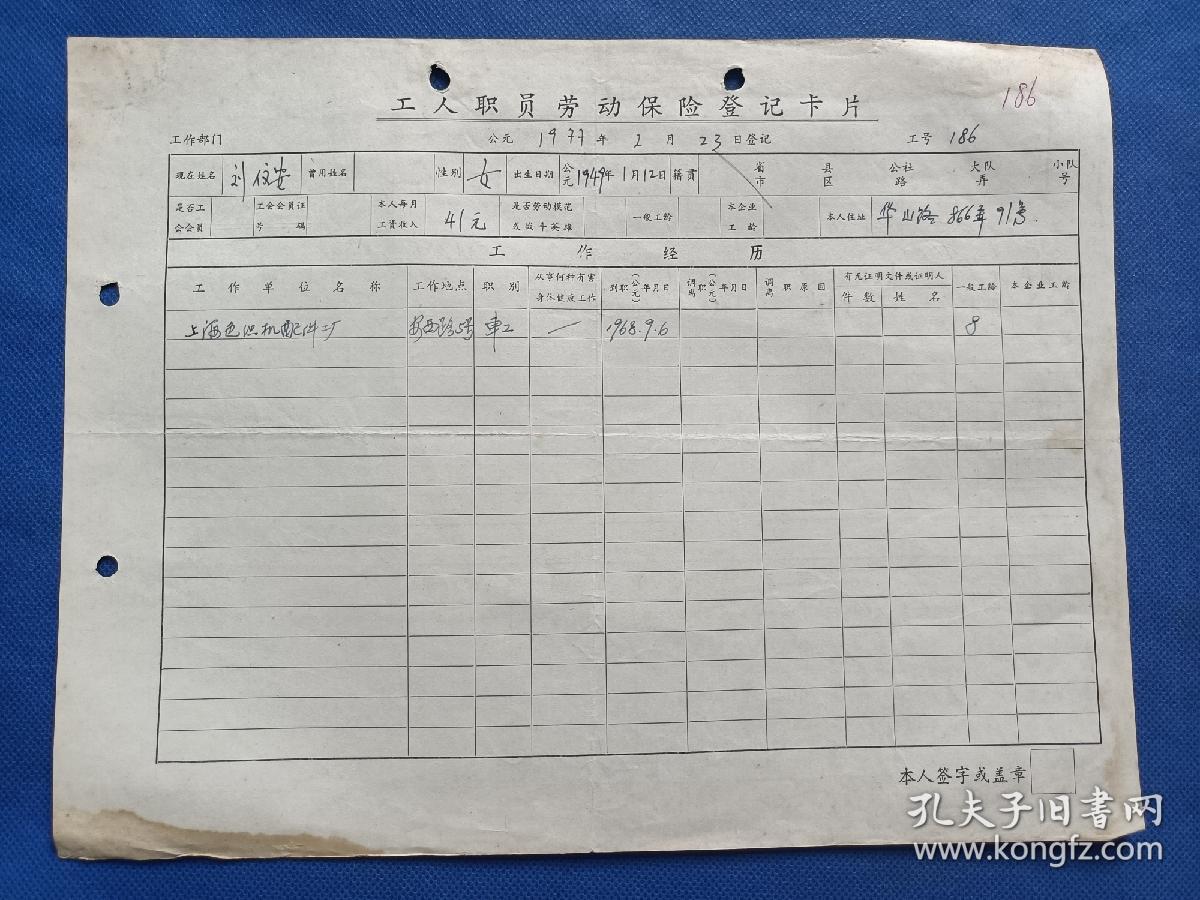 186
工人职员劳动保险登记卡片
工作部门 公元 1977 年 2 月 23 日登记 工号 186
现在姓名 刘 安 曾用姓名 性别 女 出生日期 公元 1949年1月12日 籍贯 省市 县区 公社路 大队弄 小队号
是否工会会员 工会会员证号码 本人每月工资收入 41元 是否劳动模范或战斗英雄 一般工龄 本企业工龄 本人住址 华山路 866弄 91号
工作经历
工作单位名称 工作地点 职别 从事何种有害身体健康工作 到职(公元)年月日 调离(公元)年月日 调离职原因 有无证明文件或证明人 件数 姓名 一般工龄 本企业工龄
上海色织机配件厂 安西路5号 车工 — 1968.9.6 8
本人签字或盖章
孔夫子旧書网
www.kongfz.com